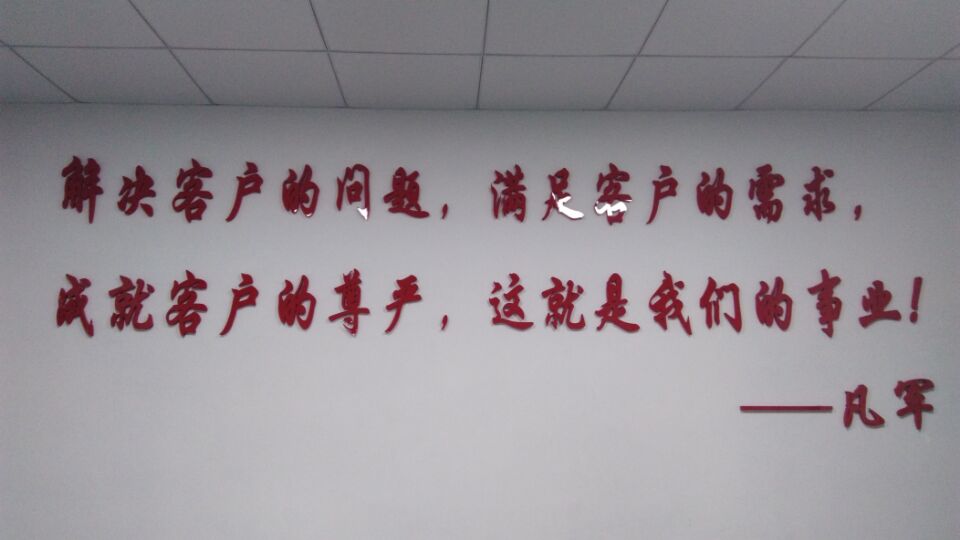 解决客户的问题，满足客户的需求，
成就客户的尊严，这就是我们的事业！
——凡军